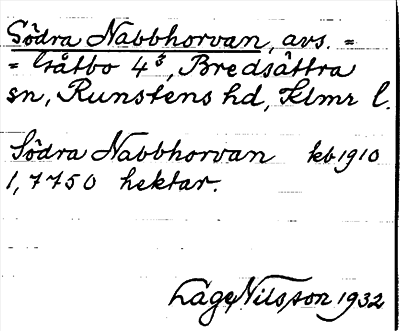 Södra Nabbhorvan, avs. =
= Gåtebo 4³, Bredsättra
sn, Runstens hd, Klmr l.
Södra Nabbhorvan kb 1910
1,7750 hektar.
Lage Nilsson 1932